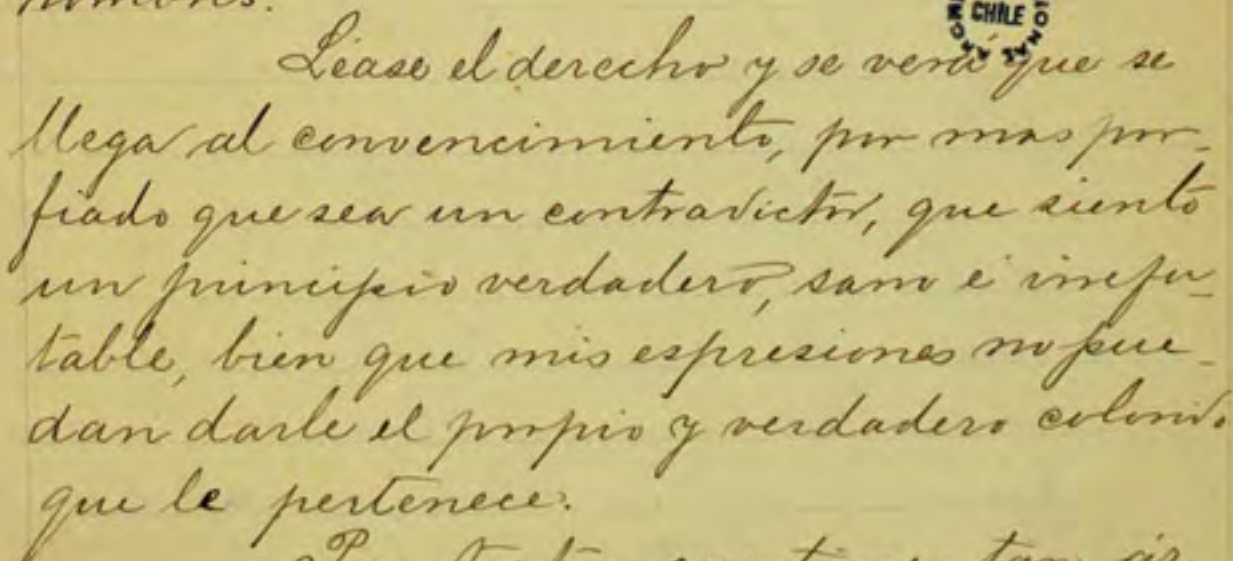 CHILE
Léase el derecho y se verá que se
llega al convencimiento, por mas por-
fiado que sea un contradictor, que siento
un principio verdadero, sano é irrefu-
table, bien que mis espresiones no pue-
dan darle el propio y verdadero colorido
que le pertenece.